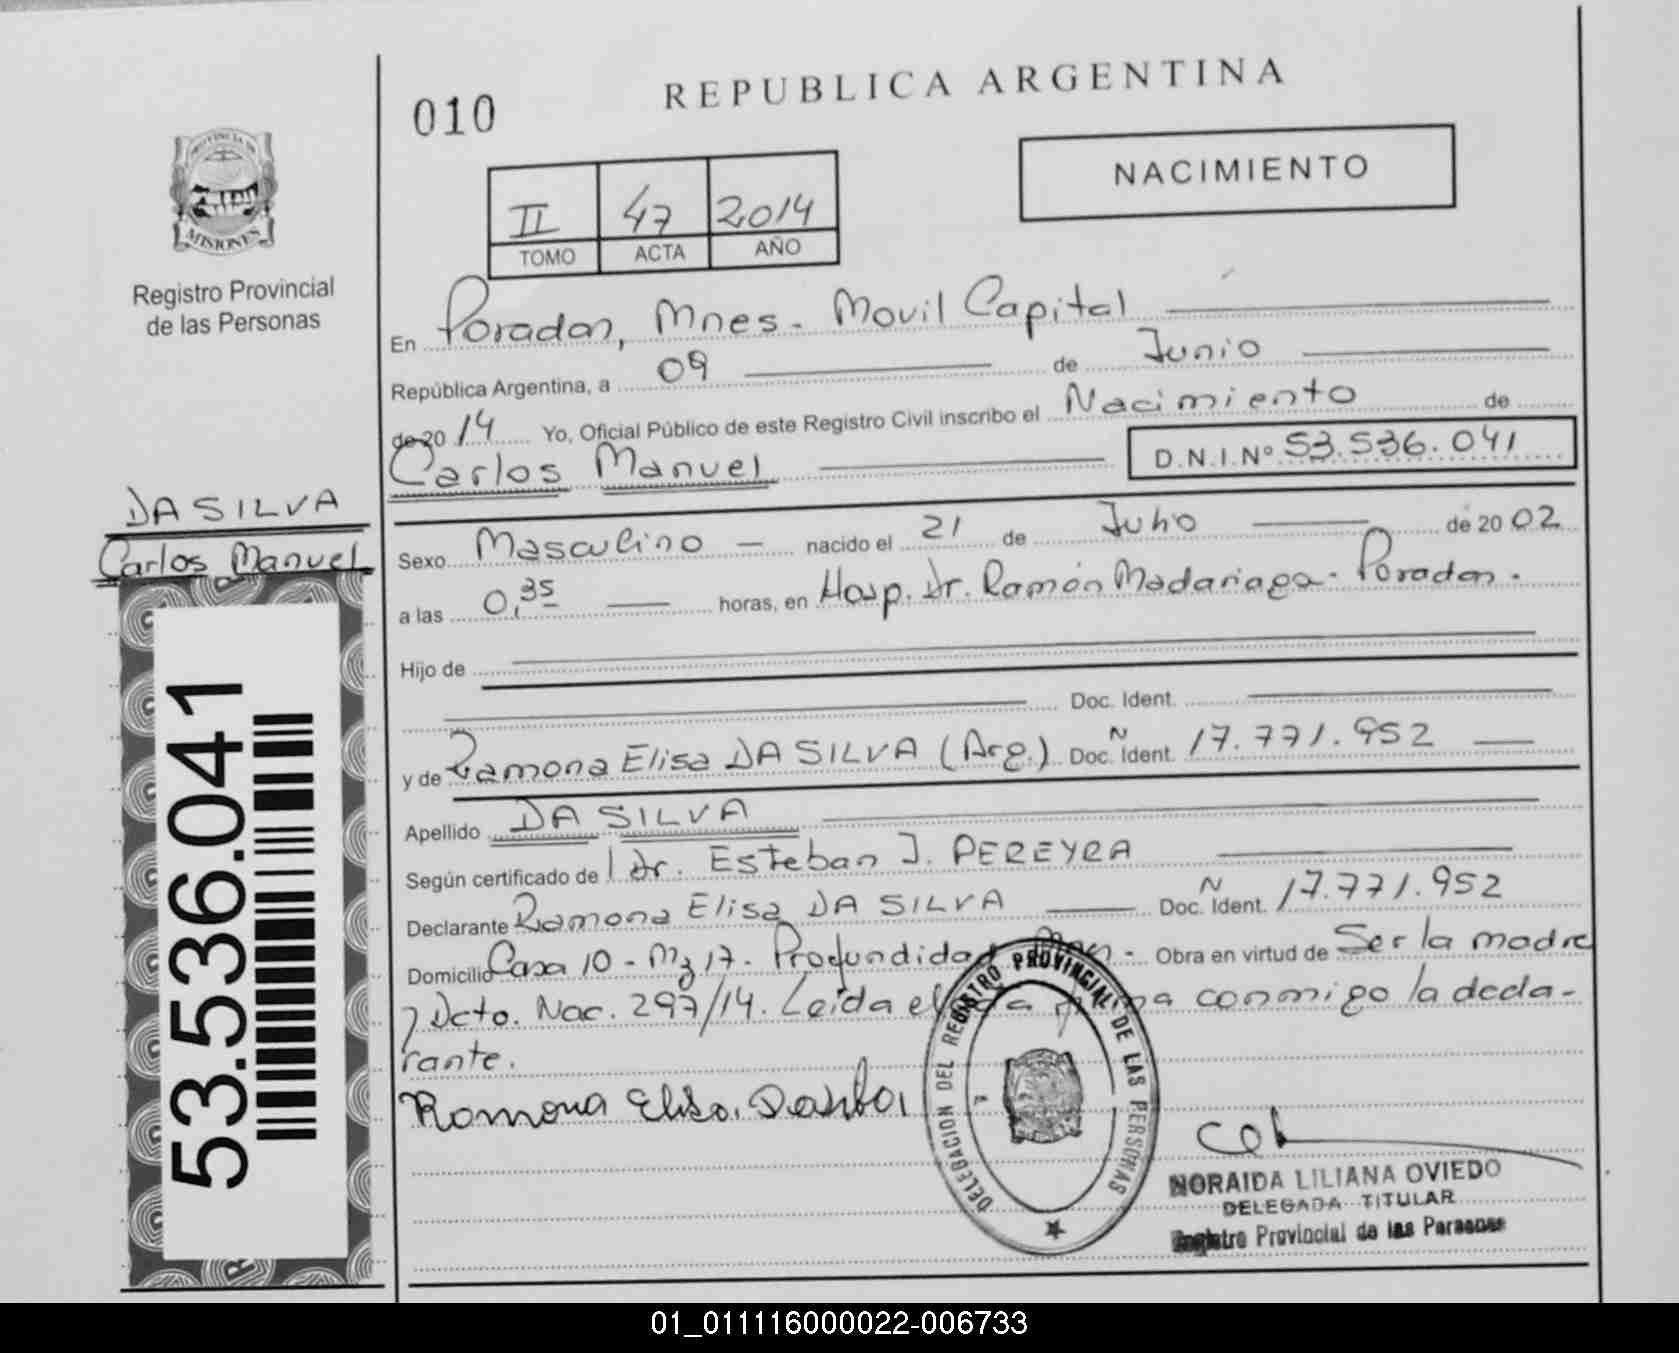 010
REPUBLICA ARGENTINA
NACIMIENTO
II 47 2014
TOMO ACTA AÑO
PROVINCIA DE
MISIONES
Registro Provincial
de las Personas
En Posadas, Mnes. Movil Capital
República Argentina, a 09 de Junio
de 20 14 Yo, Oficial Público de este Registro Civil inscribo el Nacimiento de
Carlos Manuel D.N.I.Nº 53.536.041
DA SILVA
Carlos Manuel
53.536.041
Sexo Masculino nacido el 21 de Julio de 20 02
a las 0,35 horas, en Hosp. Dr. Ramón Madariaga - Posadas.
Hijo de
Doc. Ident.
y de Ramona Elisa DA SILVA (Arg.) Doc. Ident. N 17.771.952
Apellido DA SILVA
Según certificado de Dr. Esteban J. PEREYRA
Declarante Ramona Elisa DA SILVA Doc. Ident. N 17.771.952
Domicilio Casa 10 - Mz 17. Profundidad Obra en virtud de Ser la madre
y Dcto. Nac. 297/14. Leida el conmigo la decla-
rante.
Ramona Elisa
DELEGACION DEL REGISTRO PROVINCIAL DE LAS PERSONAS
NORAIDA LILIANA OVIEDO
DELEGADA TITULAR
Registro Provincial de las Personas
01_011116000022-006733